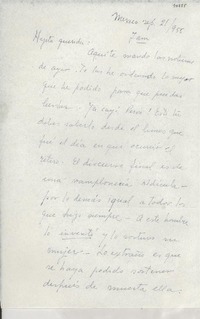 Mexico sep. 21/955
7 am
Hijito querido:
Aquí te mando las noticias
de ayer. Te las he ordenado lo mejor
que he podido para que puedas
leerlas. Ya seguí
desde el lunes que
fue el día en que ocurrió el
retiro. El discurso final es de
una
por lo demás igual a todos los
que dijo siempre - A este hombre
lo inventó y lo sostuvo una
mujer - Lo extraño es que
se haya podido sostener
después de muerta ella -